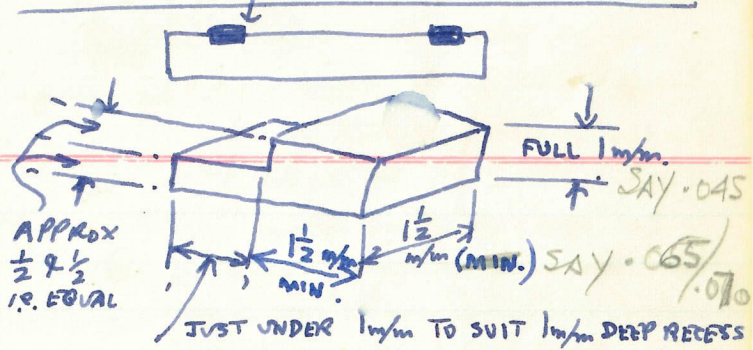 FULL 1 m/m.
SAY .045
APPROX
½ & ½
I.E. EQUAL
1½ m/m
MIN.
1½
m/m (MIN.)
SAY .065/.070
JUST UNDER 1 m/m TO SUIT 1 m/m DEEP RECESS